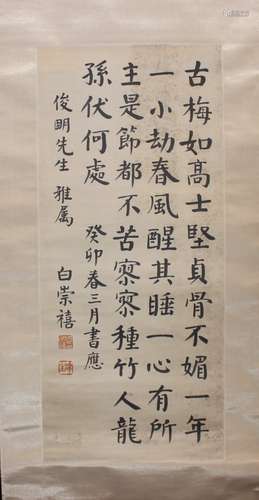 古梅如高士堅貞骨不媚一年
一小劫春風醒其睡一心有所
主是節都不苦察察種竹人龍
孫伏何處
癸卯春三月書應
俊明先生 雅屬
白崇禧